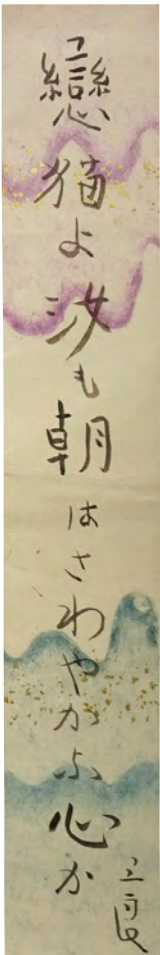 戀猫よ汝も朝はさわやかな心か